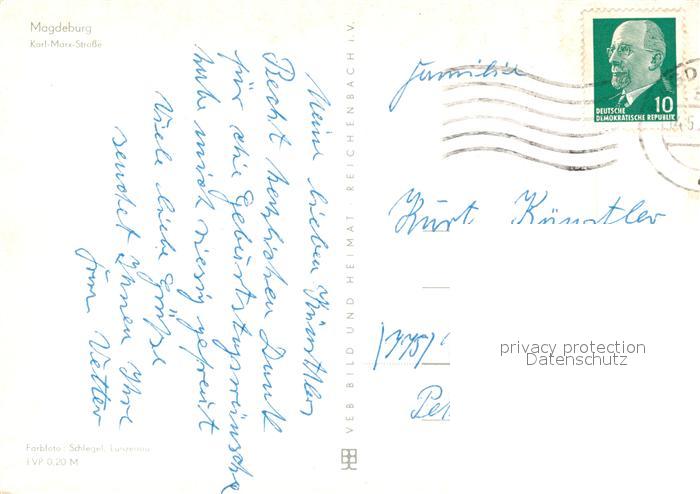 Magdeburg
Karl-Marx-Straße
Meine lieben Künstlers
Recht herzlichen Dank
für die Geburtstagswünsche
habe mich riesig gefreut
Viele liebe Grüße
sendet Ihnen Ihre
Frau Vetter
Farbfoto: Schlegel, Lunzenau
IVP 0,20 M
VEB BILD UND HEIMAT REICHENBACH i. V.
DEUTSCHE
DEMOKRATISCHE REPUBLIK
10
Familie
Kurt Künstler
privacy protection
Datenschutz